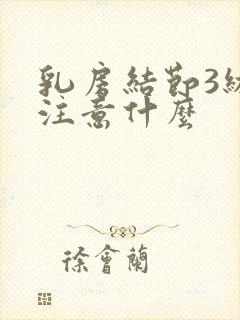 乳房結節3級
注意什麼
徐會蘭